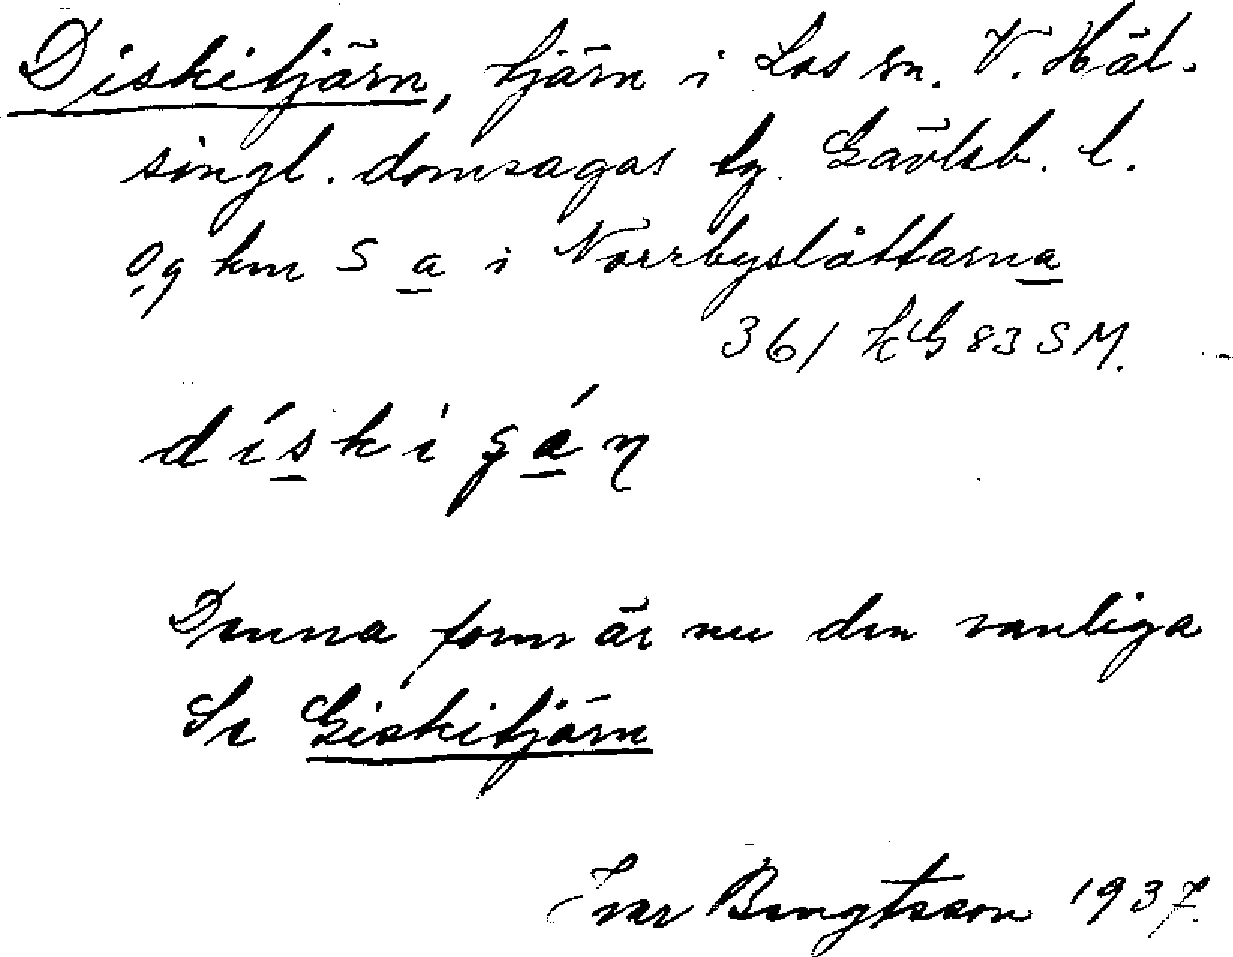 Diskitjärn, tjärn i Los sn. V. Häl-
singl. domsagas tg. Gävleb. l.
0,9 km S a i Norrbyslåttarna
361 HG 83 SM.
díski ʂǽɳ
Denna form är nu den vanliga
Se Giskitjärn
Ivar Bengtsson 1937.